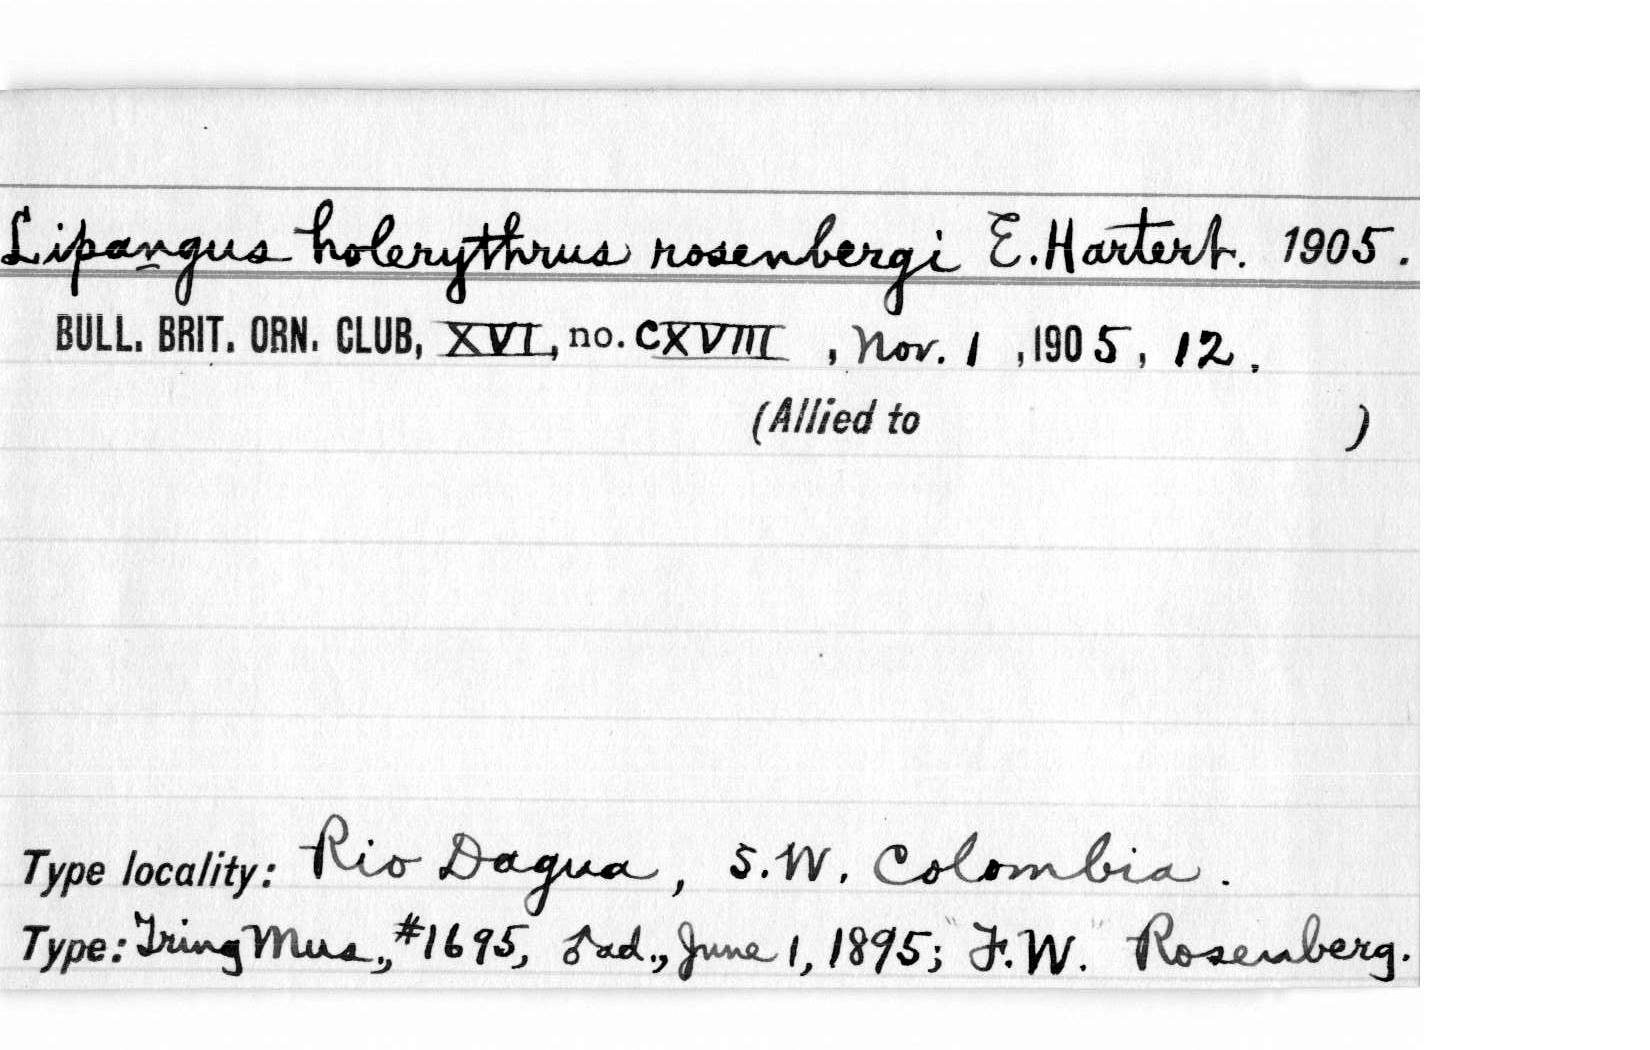 Lipangus holerythrus rosenbergi E. Hartert. 1905.
BULL. BRIT. ORN. CLUB, XVI, no. CXVIII , Nov. 1 , 1905, 12.
(Allied to )
Type locality: Rio Dagua, S.W. Colombia.
Type: Tring Mus., #1695, ♂ ad., June 1, 1895; "F.W." Rosenberg.